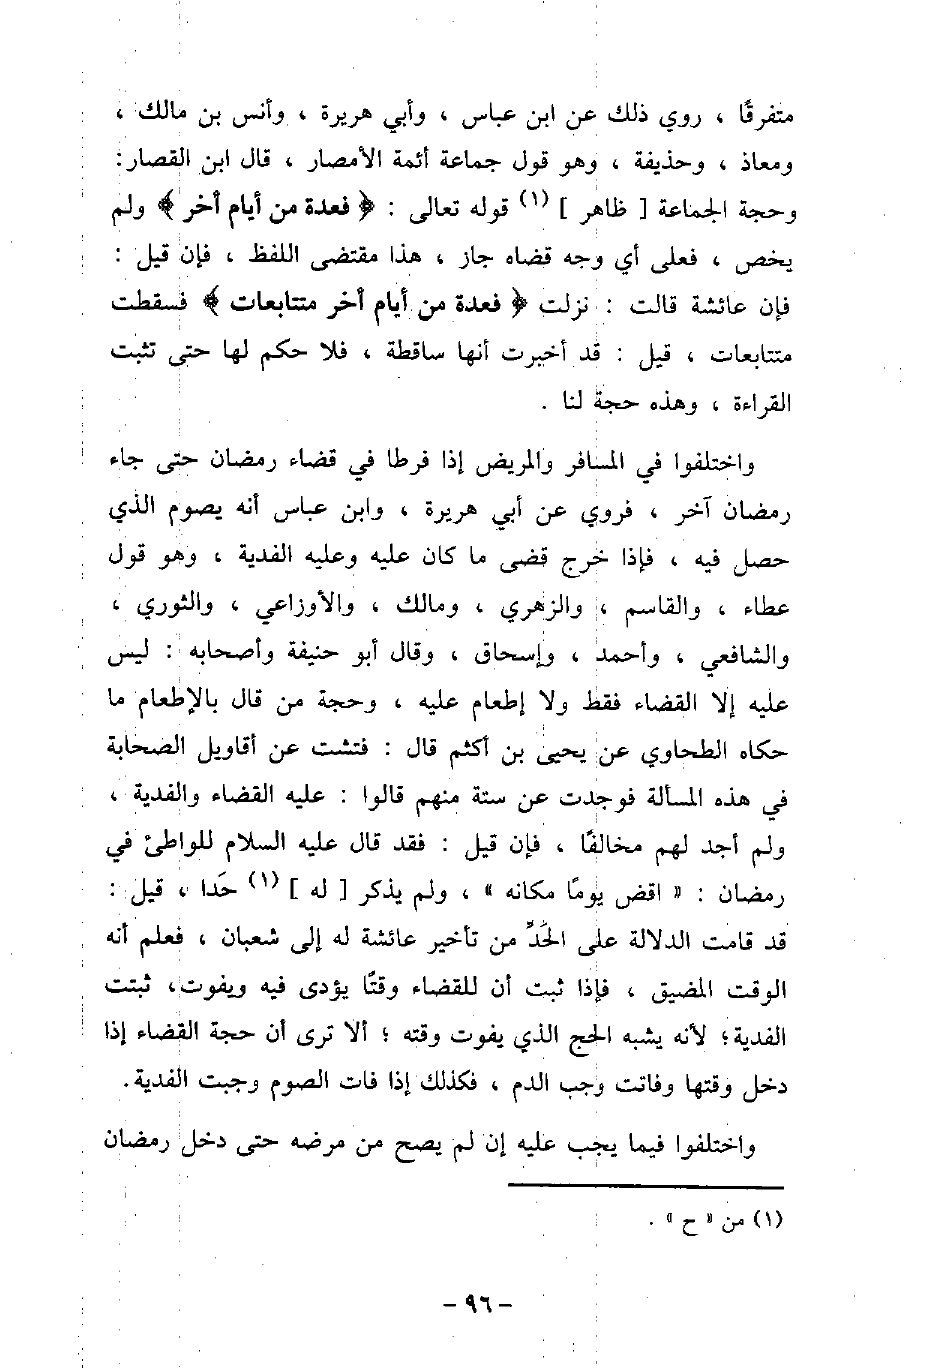 متفرقًا ، روي ذلك عن ابن عباس ، وأبي هريرة ، وأنس بن مالك ،
ومعاذ ، وحذيفة ، وهو قول جماعة أئمة الأمصار ، قال ابن القصار:
وحجة الجماعة [ ظاهر ] (١) قوله تعالى : ﴿ فعدة من أيام أخر ﴾ ولم
يخص ، فعلى أي وجه قضاه جاز ، هذا مقتضى اللفظ ، فإن قيل :
فإن عائشة قالت : نزلت ﴿ فعدة من أيام أخر متتابعات ﴾ فسقطت
متتابعات ، قيل : قد أخبرت أنها ساقطة ، فلا حكم لها حتى تثبت
القراءة ، وهذه حجة لنا .
واختلفوا في المسافر والمريض إذا فرطا في قضاء رمضان حتى جاء
رمضان آخر ، فروي عن أبي هريرة ، وابن عباس أنه يصوم الذي
حصل فيه ، فإذا خرج قضى ما كان عليه وعليه الفدية ، وهو قول
عطاء ، والقاسم ، والزهري ، ومالك ، والأوزاعي ، والثوري ،
والشافعي ، وأحمد ، وإسحاق ، وقال أبو حنيفة وأصحابه : ليس
عليه إلا القضاء فقط ولا إطعام عليه ، وحجة من قال بالإطعام ما
حكاه الطحاوي عن يحيى بن أكثم قال : فتشت عن أقاويل الصحابة
في هذه المسألة فوجدت عن ستة منهم قالوا : عليه القضاء والفدية ،
ولم أجد لهم مخالفًا ، فإن قيل : فقد قال عليه السلام للواطئ في
رمضان : « اقض يومًا مكانه » ، ولم يذكر [ له ] (١) حَدا ، قيل :
قد قامت الدلالة على الحَدِّ من تأخير عائشة له إلى شعبان ، فعلم أنه
الوقت المضيق ، فإذا ثبت أن للقضاء وقتًا يؤدى فيه ويفوت، ثبتت
الفدية؛ لأنه يشبه الحج الذي يفوت وقته ؛ ألا ترى أن حجة القضاء إذا
دخل وقتها وفاتت وجب الدم ، فكذلك إذا فات الصوم وجبت الفدية.
واختلفوا فيما يجب عليه إن لم يصح من مرضه حتى دخل رمضان
(١) من « ح » .
- ٩٦ -